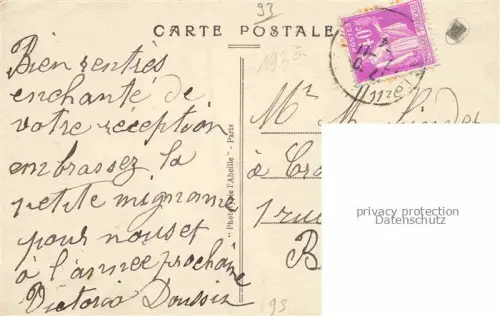 93
CARTE POSTALE
1935
Bien rentrés
enchanté de
votre reception
embrassez la
petite mignonne
pour nous et
à l'année prochaine
Victoria Doussin
"Phototypie l'Abeille" - Paris
Mr
à
1 rue
B
privacy protection
Datenschutz
93